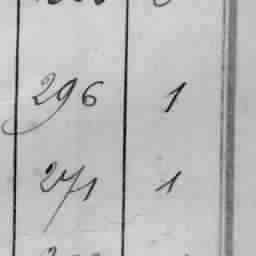 296 1
271 1